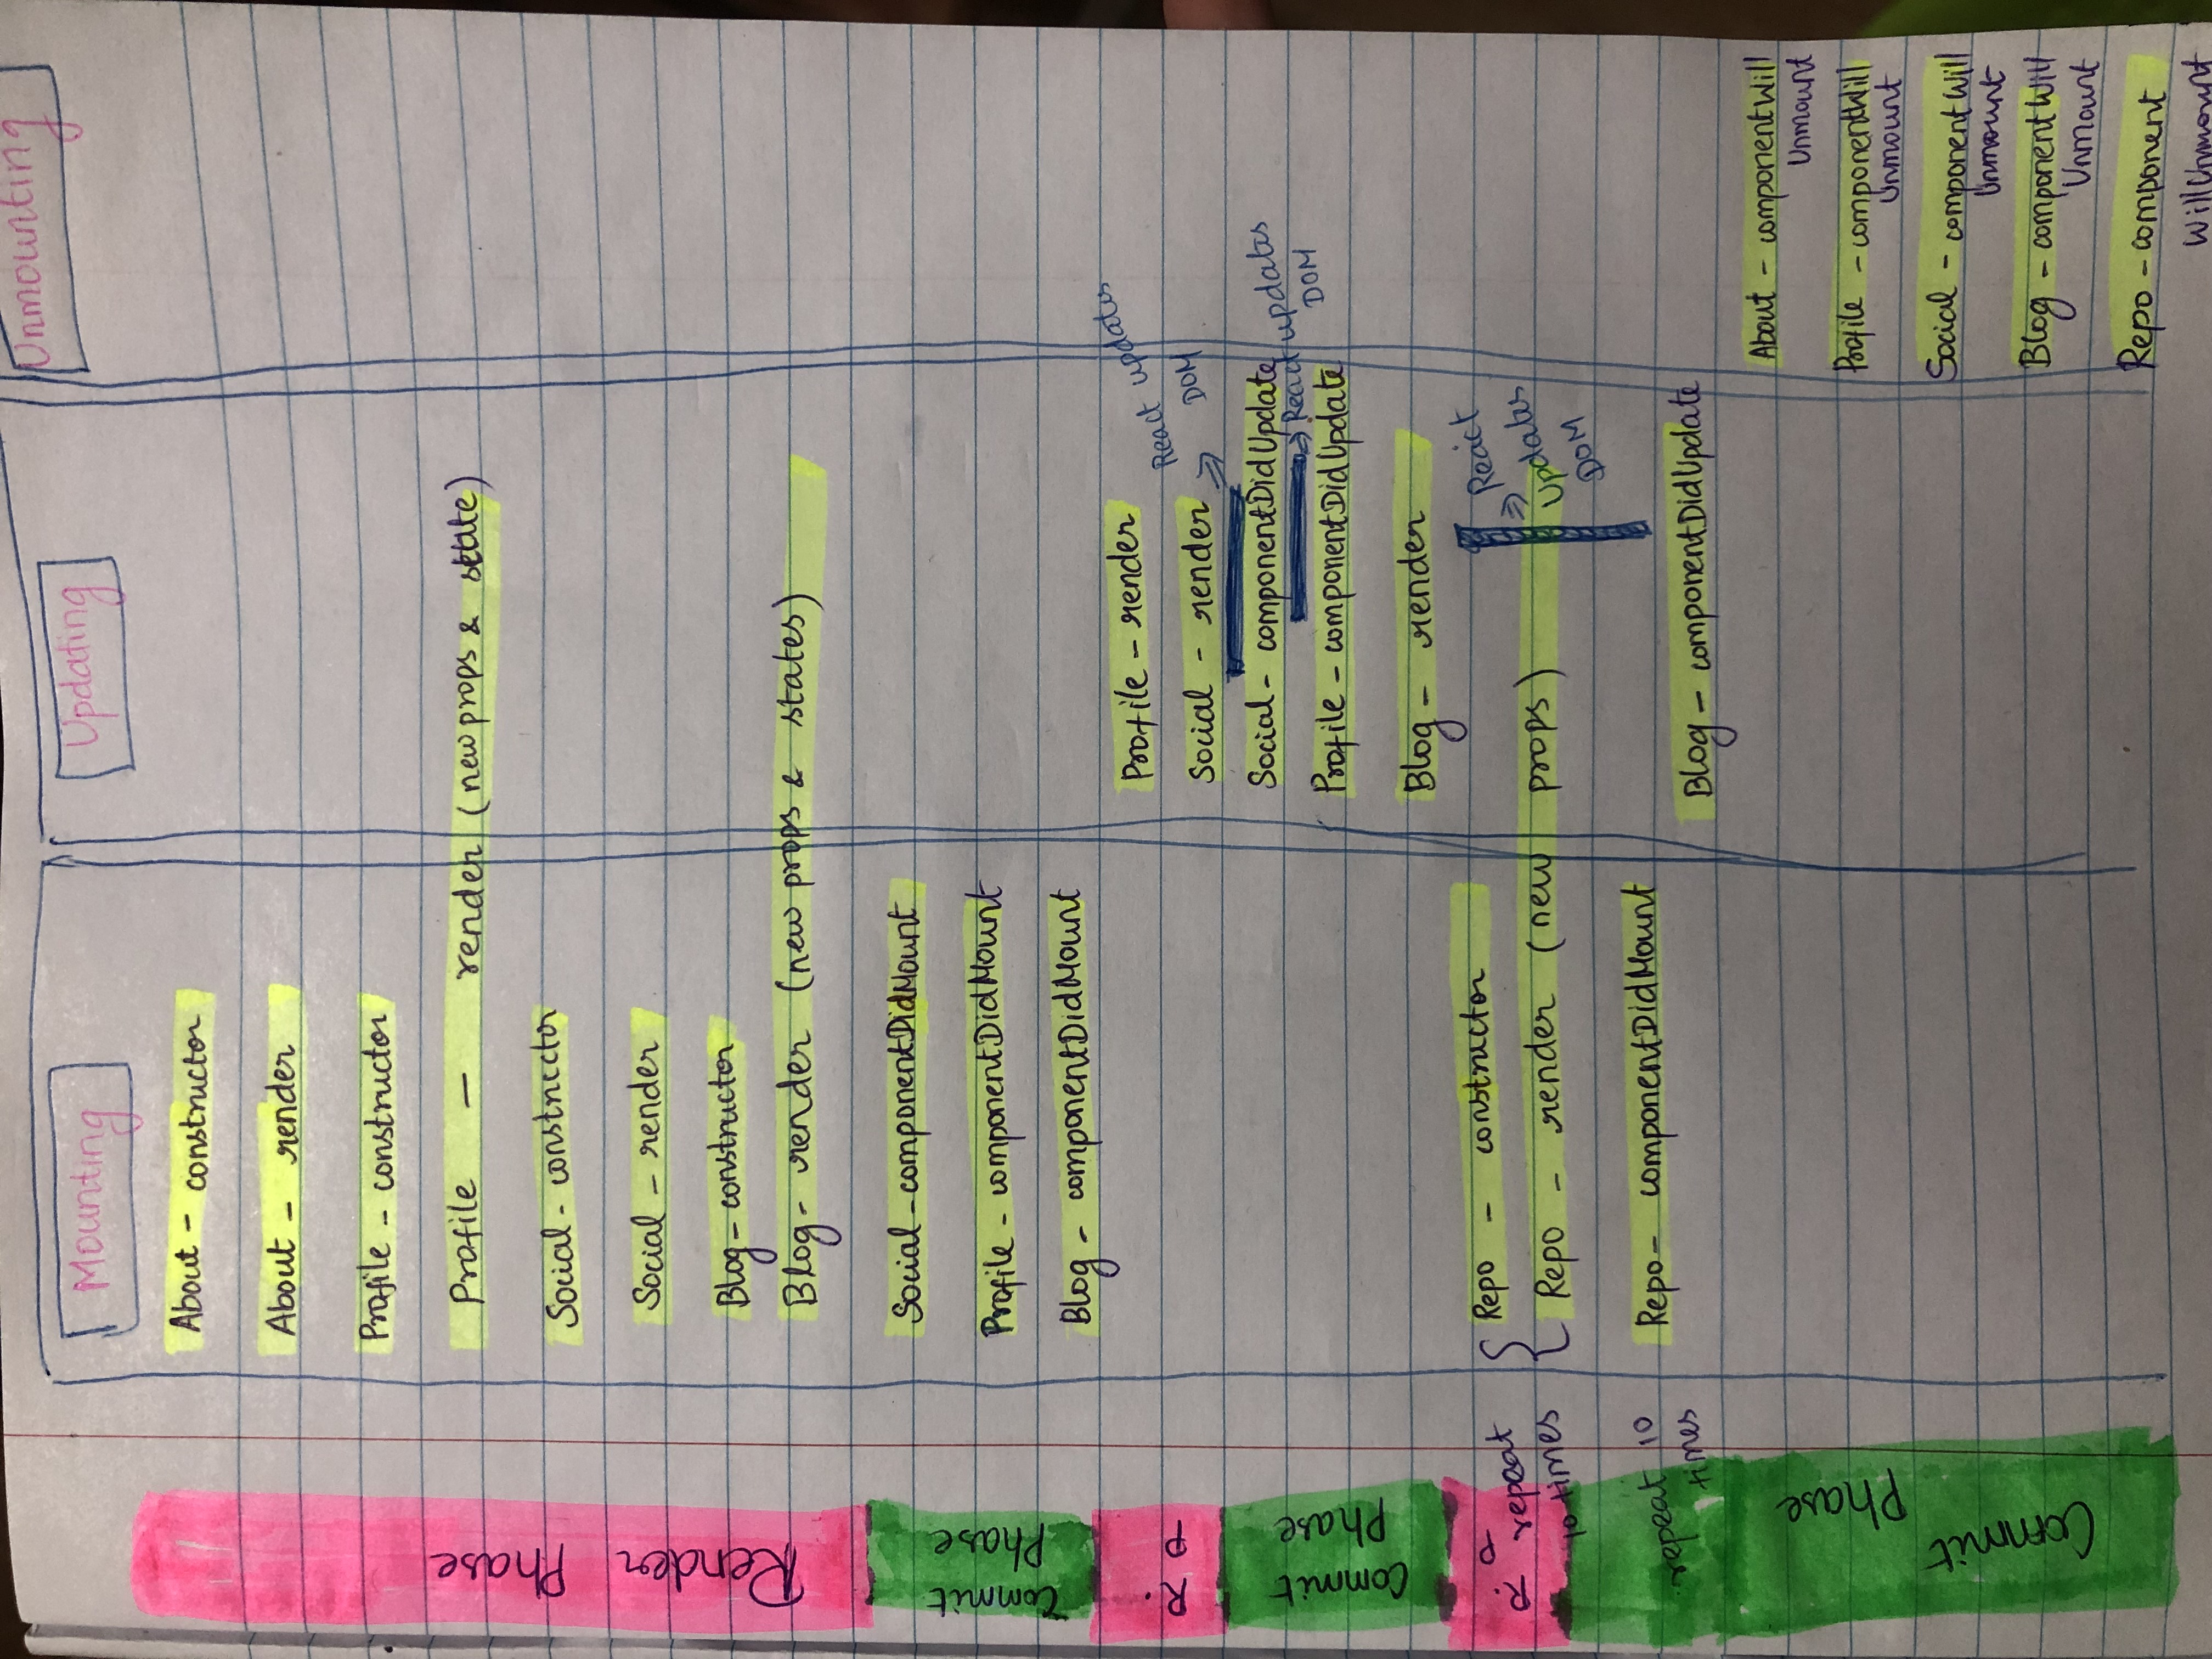 Mounting
Updating
Unmounting
Render Phase
About - constructor
About - render
Profile - constructor
Profile - render (new props & state)
Social - constructor
Social - render
Blog - constructor
Blog - render (new props & states)
Commit Phase
Social - componentDidMount
Profile - componentDidMount
Blog - componentDidMount
R. P
Profile - render
Social - render ⇒ React updates
DOM
Commit Phase
Social - componentDidUpdate
⇒ React updates
DOM
Profile - componentDidUpdate
Blog - render
R. P
repeat
10 times
Repo - constructor
Repo - render (new props)
⇒ React
Updates
DOM
repeat 10
times
Repo - componentDidMount
Blog - componentDidUpdate
Commit Phase
About - componentWill
Unmount
Profile - componentWill
Unmount
Social - componentWill
Unmount
Blog - componentWill
Unmount
Repo - component
WillUnmount